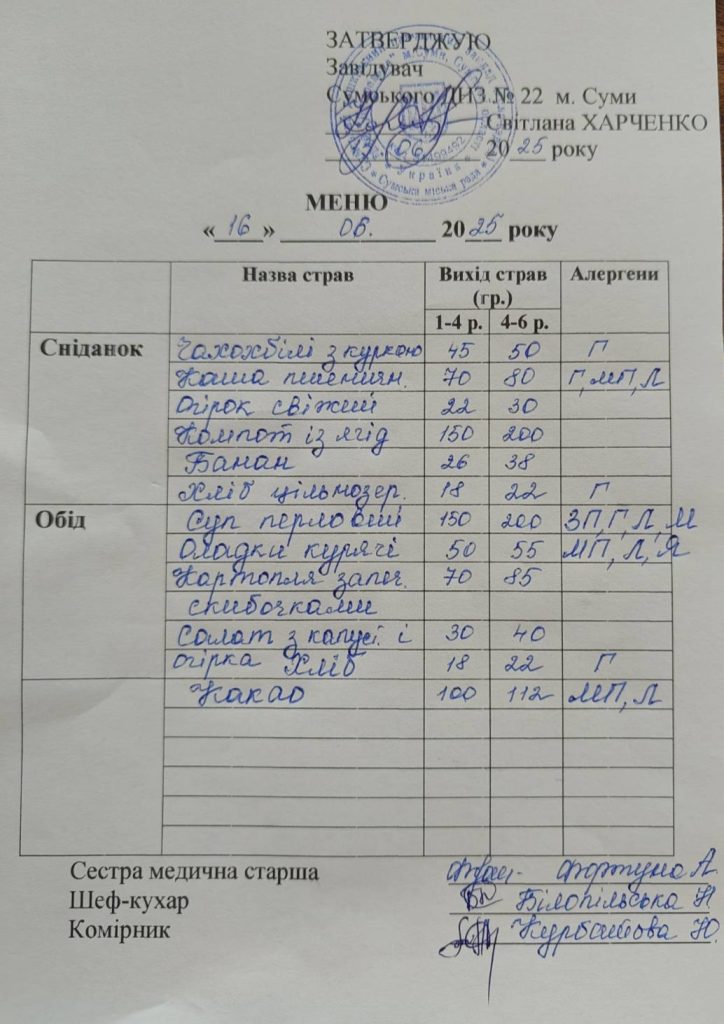 ЗАТВЕРДЖУЮ
Завідувач
Сумського ДНЗ № 22 м. Суми
Світлана ХАРЧЕНКО
13 06 2025 року
МЕНЮ
«16» 06. 2025 року
Назва страв Вихід страв (гр.) Алергени
1-4 р. 4-6 р.
Сніданок Чахохбілі з куркою 45 50 Г
Каша пшеничн. 70 80 Г, МП, Л
Огірок свіжий 22 30
Компот із ягід 150 200
Банан 26 38
Хліб цільнозер. 18 22 Г
Обід Суп перловий 150 200 ЗП, Г, Л, М
Оладки курячі 50 55 МП, Л, Я
Картопля запеч. 70 85
скибочками
Салат з капусі і 30 40
огірка Хліб 18 22 Г
Какао 100 112 МП, Л
Сестра медична старша Фортуна Л.
Шеф-кухар Білопільська Н.
Комірник Курбатова Ю.